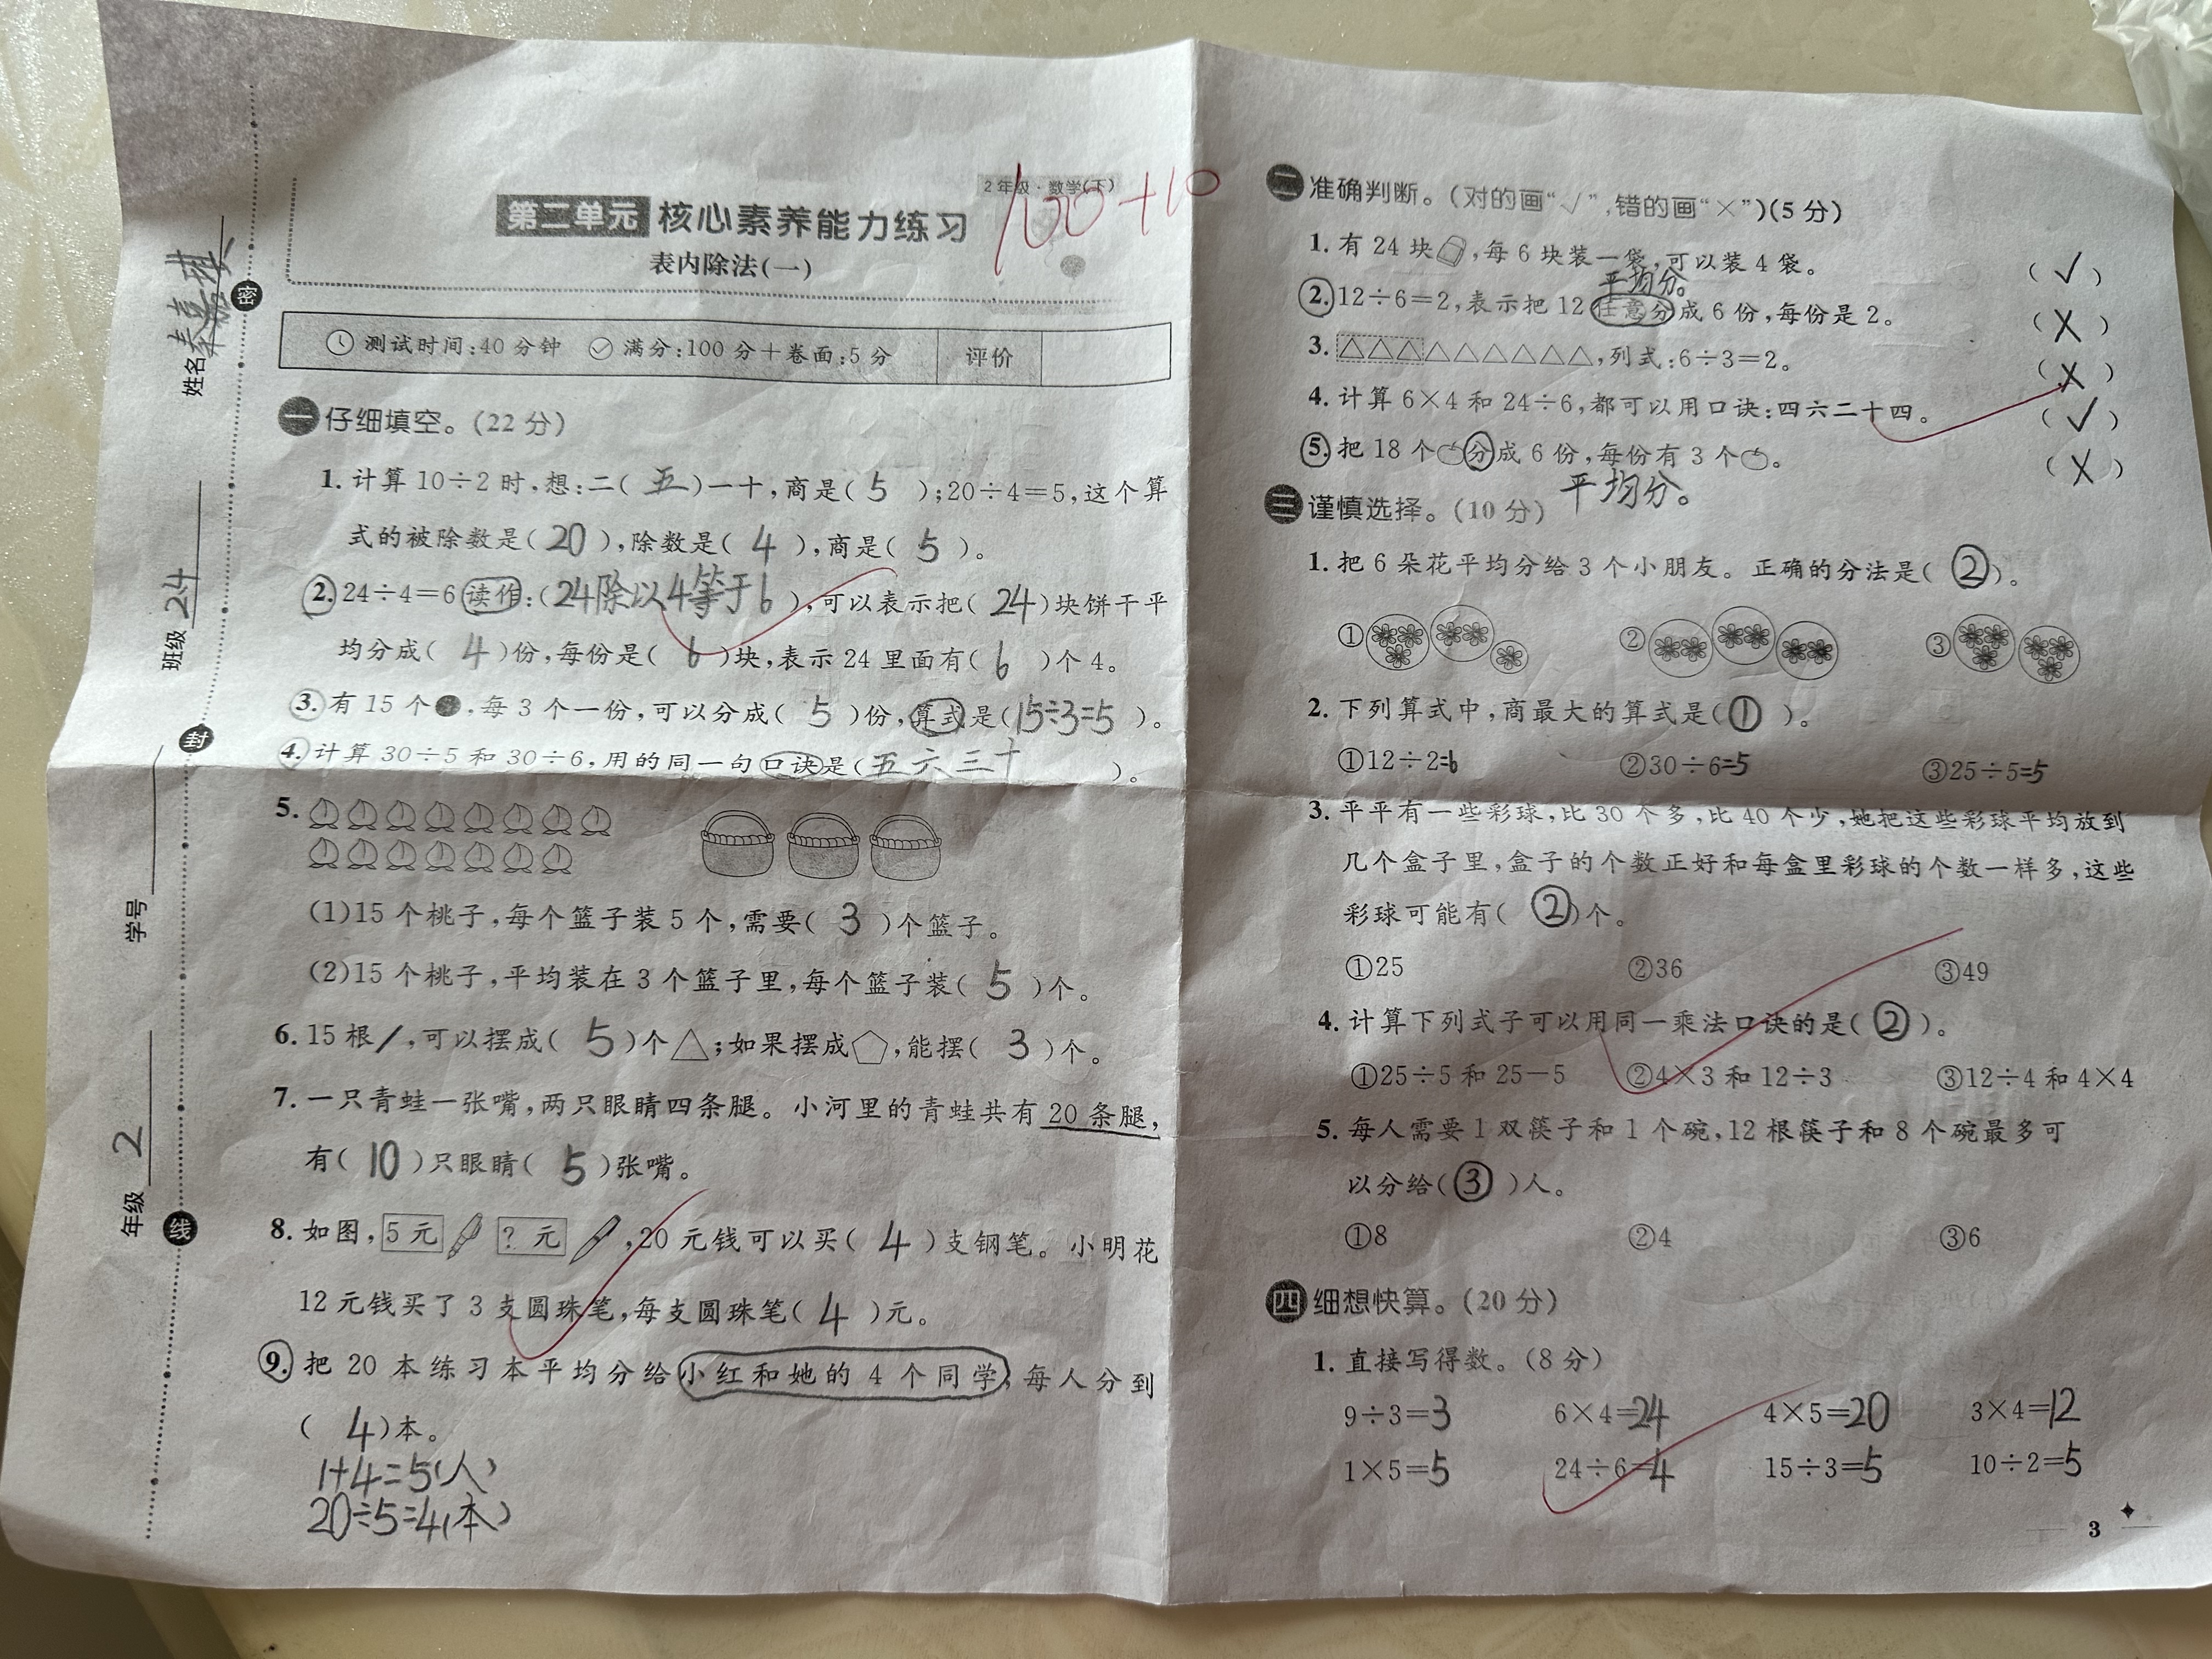 2年级·数学(下)
100+10
第二单元 核心素养能力练习
表内除法(一)
测试时间:40分钟 满分:100分+卷面:5分 评价
密
封
线
姓名
班级 24
学号
年级 2
一 仔细填空。(22分)
1. 计算10÷2时,想:二(五)一十,商是(5);20÷4=5,这个算
式的被除数是(20),除数是(4),商是(5)。
2. 24÷4=6读作:(24除以4等于6),可以表示把(24)块饼干平
均分成(4)份,每份是(6)块,表示24里面有(6)个4。
3. 有15个●,每3个一份,可以分成(5)份,算式是(15÷3=5)。
4. 计算30÷5和30÷6,用的同一句口诀是(五六三十)。
5.
(1)15个桃子,每个篮子装5个,需要(3)个篮子。
(2)15个桃子,平均装在3个篮子里,每个篮子装(5)个。
6. 15根/,可以摆成(5)个△;如果摆成⬠,能摆(3)个。
7. 一只青蛙一张嘴,两只眼睛四条腿。小河里的青蛙共有20条腿,
有(10)只眼睛(5)张嘴。
8. 如图, 5元 ? 元 ,20元钱可以买(4)支钢笔。小明花
12元钱买了3支圆珠笔,每支圆珠笔(4)元。
9. 把20本练习本平均分给小红和她的4个同学,每人分到
(4)本。
1+4=5(人)
20÷5=4(本)
二 准确判断。(对的画“√”,错的画“×”)(5分)
1. 有24块,每6块装一袋,可以装4袋。 (√)
平均分。
2. 12÷6=2,表示把12任意分成6份,每份是2。 (×)
3. △△△△△△△△△,列式:6÷3=2。 (×)
4. 计算6×4和24÷6,都可以用口诀:四六二十四。 (√)
5. 把18个分成6份,每份有3个。 (×)
平均分。
三 谨慎选择。(10分)
1. 把6朵花平均分给3个小朋友。正确的分法是(②)。
① ② ③
2. 下列算式中,商最大的算式是(①)。
①12÷2=6 ②30÷6=5 ③25÷5=5
3. 平平有一些彩球,比30个多,比40个少,她把这些彩球平均放到
几个盒子里,盒子的个数正好和每盒里彩球的个数一样多,这些
彩球可能有(②)个。
①25 ②36 ③49
4. 计算下列式子可以用同一乘法口诀的是(②)。
①25÷5和25-5 ②4×3和12÷3 ③12÷4和4×4
5. 每人需要1双筷子和1个碗,12根筷子和8个碗最多可
以分给(③)人。
①8 ②4 ③6
四 细想快算。(20分)
1. 直接写得数。(8分)
9÷3=3 6×4=24 4×5=20 3×4=12
1×5=5 24÷6=4 15÷3=5 10÷2=5
3